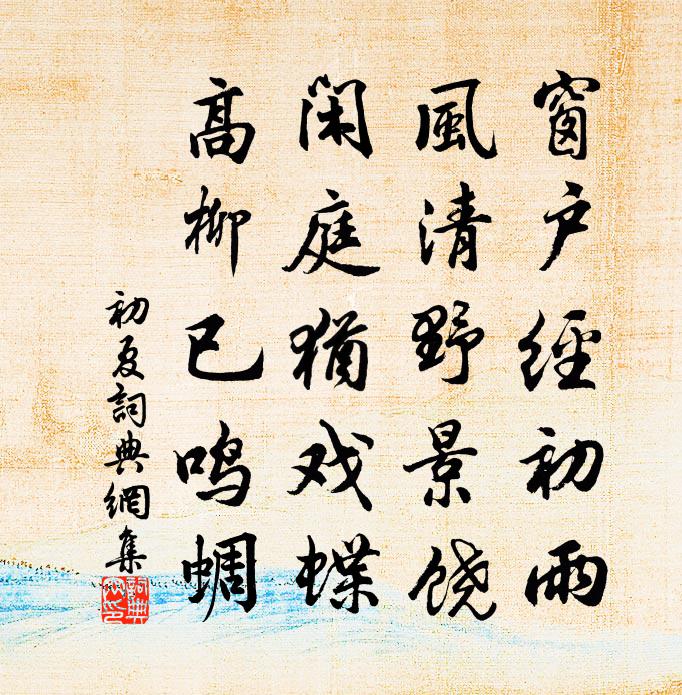 窗户經初雨
風清野景饶
闲庭犹戏蝶
高柳已鸣蜩
初夏詞典網集